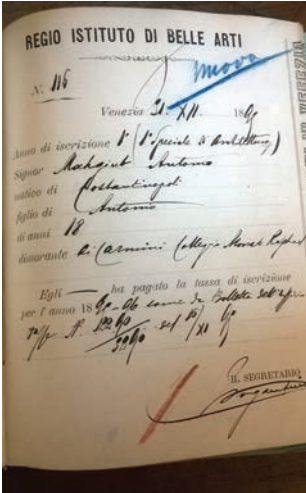 REGIO ISTITUTO DI BELLE ARTI
nuovo
N. 116
Venezia 31. XII. 1895
Anno di iscrizione 1° (1° Speciale di Architettura)
Signor Antonio
nativo di Costantinopoli
figlio di Antonio
di anni 18
dimorante ai Carmini Collegio Moorat Raphael
Egli — ha pagato la tassa di iscrizione
per l'anno 1895-96 come da Bolletta dell'Ufficio
IL SEGRETARIO